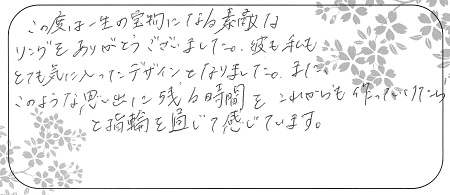 この度は一生の宝物になる素敵な
リングをありがとうございました。彼も私も
とても気に入ったデザインとなりました。また、
このような思い出に残る時間を これからも作っていけたら
と指輪を通じて感じています。